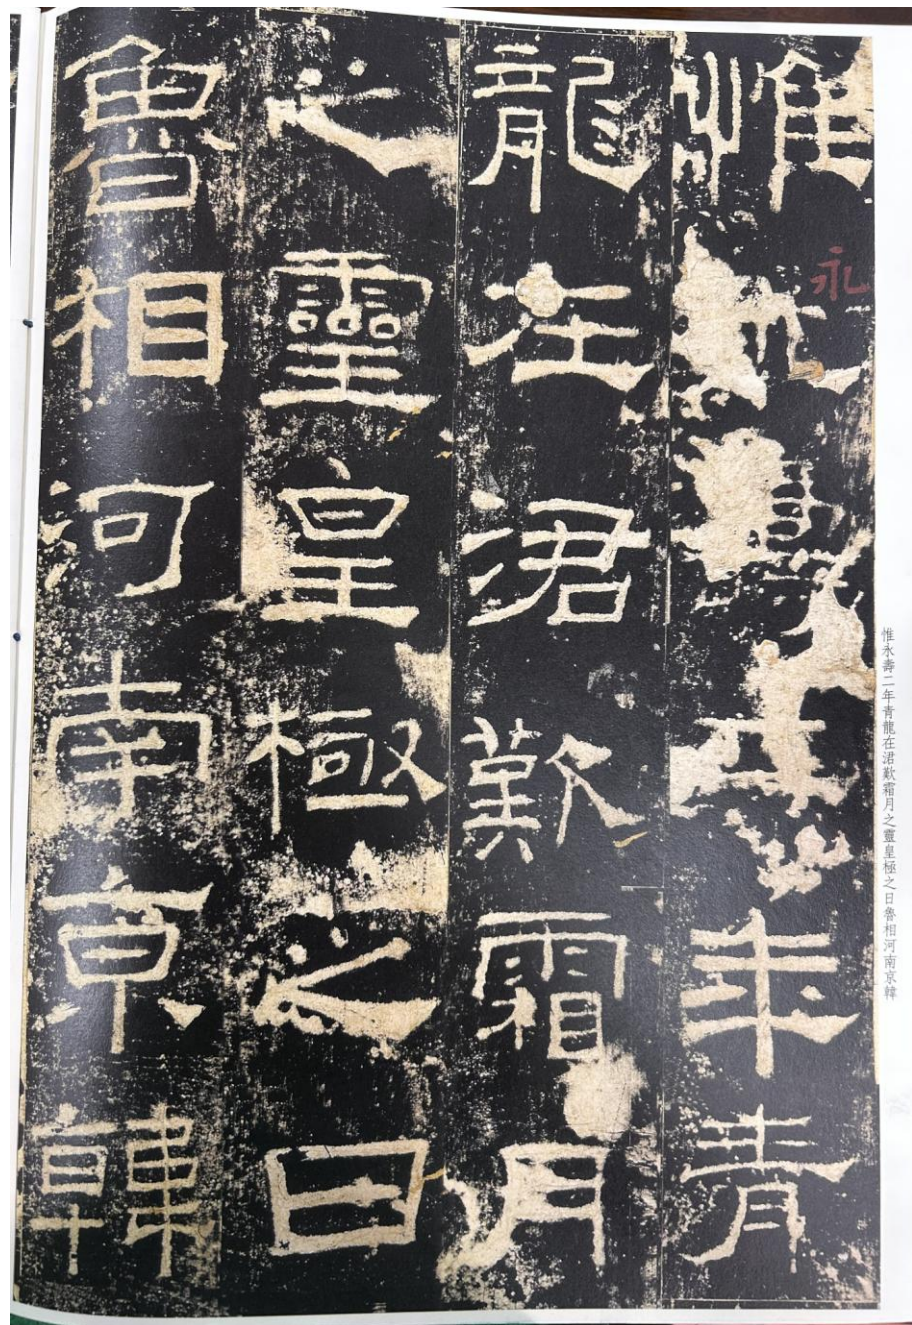 惟永壽二年青
龍在涒歎霜月
之靈皇極之日
魯相河南京韓
永
惟永壽二年青龍在涒歎霜月之靈皇極之日魯相河南京韓